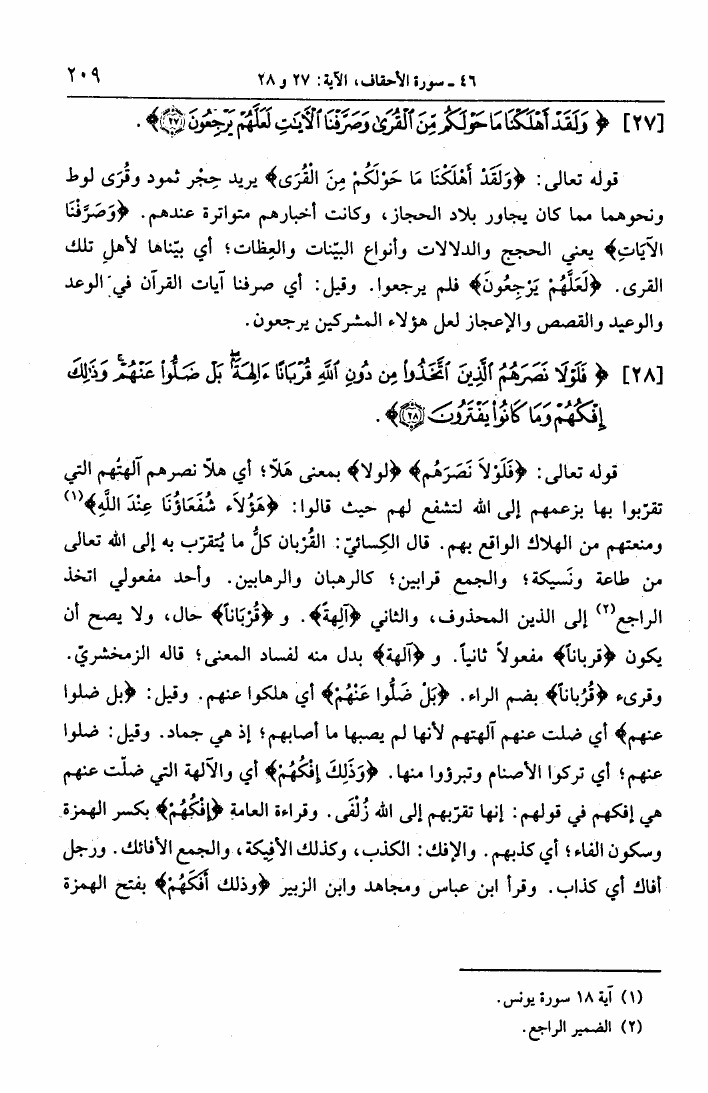 ٤٦ - سورة الأحقاف، الآية: ٢٧ و ٢٨
٢٠٩
[٢٧] ﴿ وَلَقَدْ أَهْلَكْنَا مَا حَوْلَكُم مِّنَ ٱلْقُرَىٰ وَصَرَّفْنَا ٱلْآيَٰتِ لَعَلَّهُمْ يَرْجِعُونَ ﴿٢٧﴾ ﴾ .
قوله تعالى: ﴿وَلَقَدْ أَهْلَكْنَا مَا حَوْلَكُمْ مِنَ الْقُرَى﴾ يريد حِجْر ثمود وقُرَى لوط
ونحوهما مما كان يجاور بلاد الحجاز، وكانت أخبارهم متواترة عندهم. ﴿وَصَرَّفْنَا
الآيَاتِ﴾ يعني الحجج والدلالات وأنواع البيّنات والعِظات؛ أي بيّناها لأهل تلك
القرى. ﴿لَعَلَّهُمْ يَرْجِعُونَ﴾ فلم يرجعوا. وقيل: أي صرفنا آيات القرآن في الوعد
والوعيد والقصص والإعجاز لعل هؤلاء المشركين يرجعون.
[٢٨] ﴿ فَلَوْلَا نَصَرَهُمُ ٱلَّذِينَ ٱتَّخَذُوا۟ مِن دُونِ ٱللَّهِ قُرْبَانًا ءَالِهَةًۢ بَلْ ضَلُّوا۟ عَنْهُمْ ۚ وَذَٰلِكَ
إِفْكُهُمْ وَمَا كَانُوا۟ يَفْتَرُونَ ﴿٢٨﴾ ﴾ .
قوله تعالى: ﴿فَلَوْلاَ نَصَرَهُم﴾ ﴿لولا﴾ بمعنى هَلاّ؛ أي هلاّ نصرهم آلهتُهم التي
تقرّبوا بها بزعمهم إلى الله لتشفع لهم حيث قالوا: ﴿هَؤُلاَء شُفَعَاؤُنَا عِنْدَ اللَّهِ﴾(١)
ومنعتهم من الهلاك الواقع بهم. قال الكِسائيّ: القُرْبان كلُّ ما يُتقرّب به إلى الله تعالى
من طاعة ونَسيكة؛ والجمع قرابين؛ كالرهبان والرهابين. وأحد مفعولي اتخذ
الراجع(٢) إلى الذين المحذوف، والثاني ﴿آلِهةً﴾. و ﴿قُرْبَاناً﴾ حال، ولا يصح أن
يكون ﴿قرباناً﴾ مفعولاً ثانياً. و ﴿آلهة﴾ بدل منه لفساد المعنى؛ قاله الزمخشريّ.
وقرىء ﴿قُرُبَاناً﴾ بضم الراء. ﴿بَلْ ضَلُّوا عَنْهُمْ﴾ أي هلكوا عنهم. وقيل: ﴿بل ضلوا
عنهم﴾ أي ضلت عنهم آلهتهم لأنها لم يصبها ما أصابهم؛ إذ هي جماد. وقيل: ضلوا
عنهم؛ أي تركوا الأصنام وتبرؤوا منها. ﴿وَذَلِكَ إِفْكُهُمْ﴾ أي والآلهة التي ضلّت عنهم
هي إفكهم في قولهم: إنها تقرّبهم إلى الله زُلْفَى. وقراءة العامة ﴿إِفْكُهُمْ﴾ بكسر الهمزة
وسكون الفاء؛ أي كذبهم. والإفك: الكذب، وكذلك الأَفِيكَة، والجمع الأفائك. ورجل
أفاك أي كذاب. وقرأ ابن عباس ومجاهد وابن الزبير ﴿وذلك أَفَكَهُمْ﴾ بفتح الهمزة
(١) آية ١٨ سورة يونس.
(٢) الضمير الراجع.